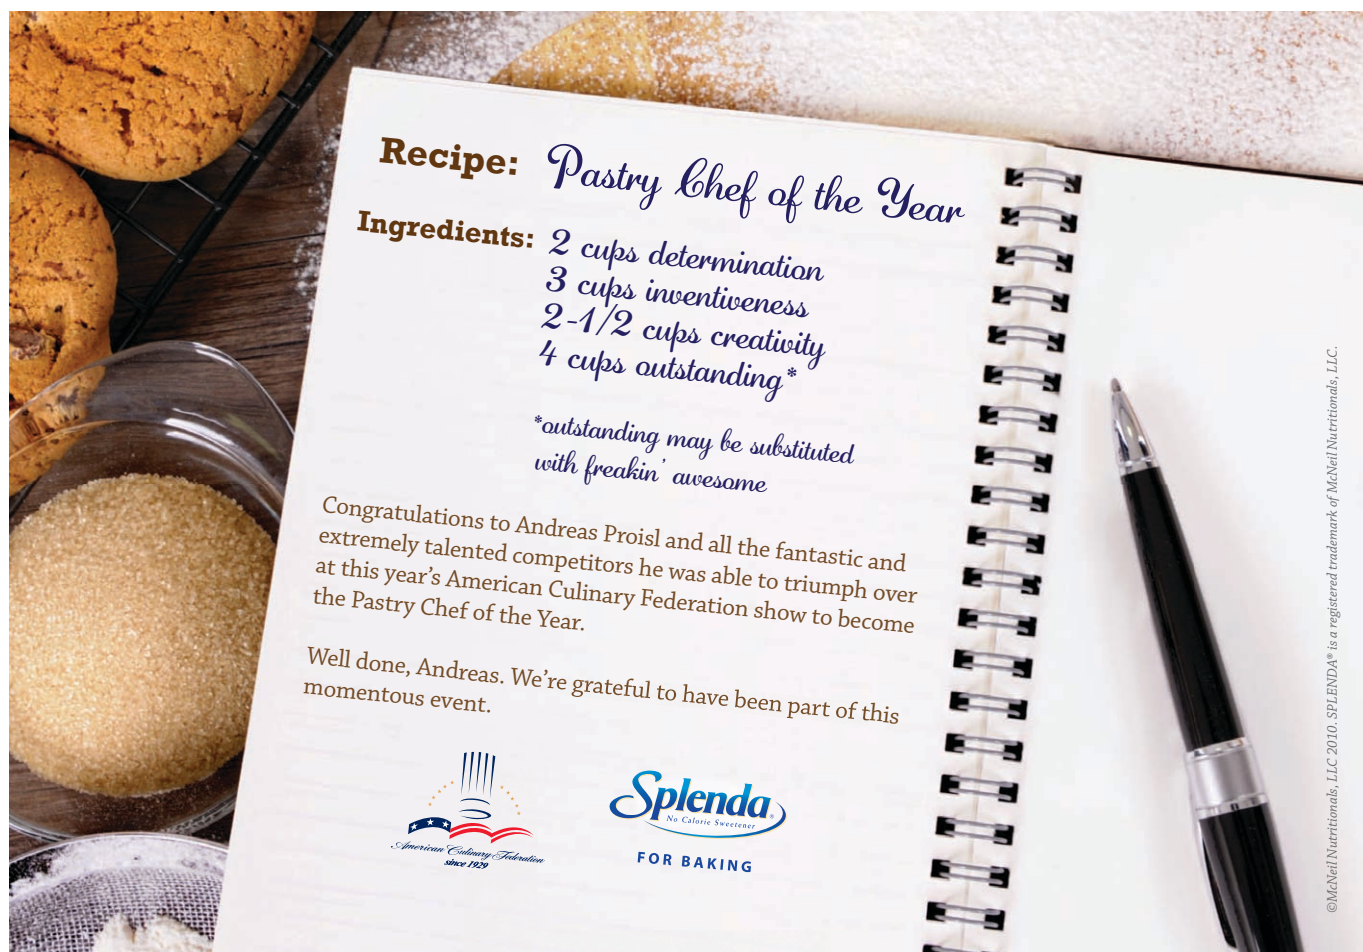 Recipe: Pastry Chef of the Year
Ingredients: 2 cups determination
3 cups inventiveness
2-1/2 cups creativity
4 cups outstanding*
*outstanding may be substituted
with freakin' awesome
Congratulations to Andreas Proisl and all the fantastic and
extremely talented competitors he was able to triumph over
at this year's American Culinary Federation show to become
the Pastry Chef of the Year.
Well done, Andreas. We're grateful to have been part of this
momentous event.
American Culinary Federation
since 1929
Splenda®
No Calorie Sweetener
FOR BAKING
©McNeil Nutritionals, LLC 2010. SPLENDA® is a registered trademark of McNeil Nutritionals, LLC.